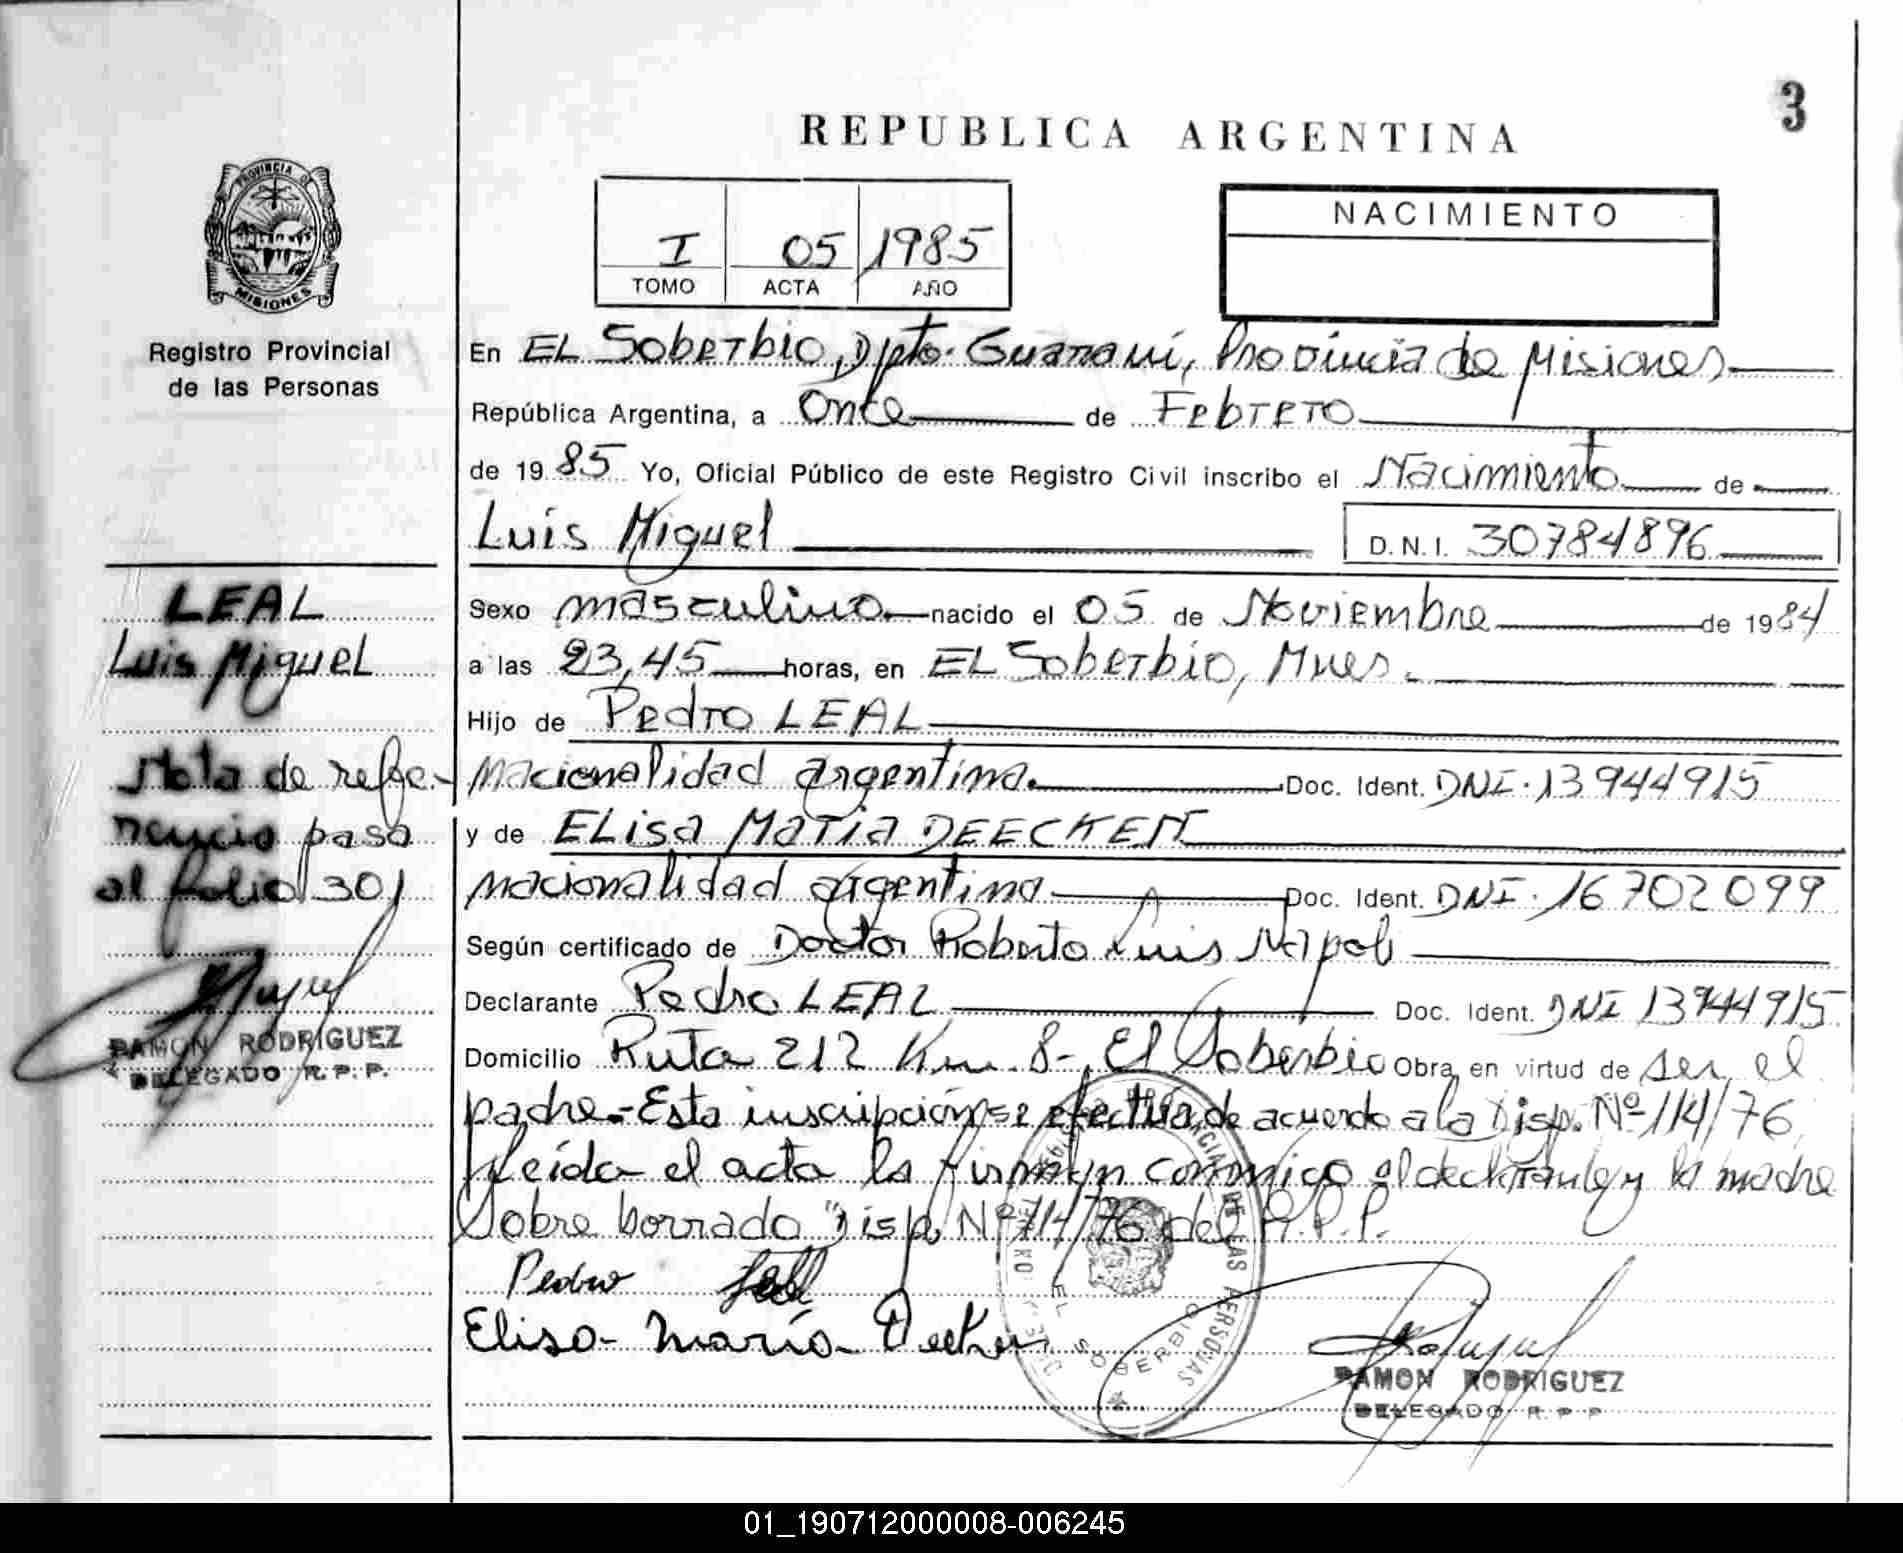 3
REPUBLICA ARGENTINA
PROVINCIA DE
MISIONES
Registro Provincial
de las Personas
I 05 1985
TOMO ACTA AÑO
NACIMIENTO
En EL Soberbio, Dpto. Guaraní, Provincia de Misiones
República Argentina, a Once de Febrero
de 1985 Yo, Oficial Público de este Registro Civil inscribo el Nacimiento de
Luis Miguel D.N.I. 30784896
LEAL
Luis Miguel
Nota de refe-
rencia pasa
al folio 301
RAMON RODRIGUEZ
DELEGADO R. P. P.
Sexo masculino nacido el 05 de Noviembre de 1984
a las 23,45 horas, en EL Soberbio, Mnes.
Hijo de Pedro LEAL
nacionalidad argentina. Doc. Ident. DNI. 13944915
y de ELisa Maria DEECKEN
nacionalidad argentina Doc. Ident. DNI. 16702099
Según certificado de Doctor Roberto Luis Napoli
Declarante Pedro LEAL Doc. Ident. DNI 13944915
Domicilio Ruta 212 Km. 8-, El Soberbio Obra en virtud de ser el
padre.- Esta inscripción se efectúa de acuerdo a la Disp. Nº 114/76
Leída el acta la firman conmigo el declarante y la madre
Sobre borrado "Disp. Nº 114/76 del R.P.P.
Pedro Leal
Elisa María Decken
EL SOBERBIO
DE LAS PERSONAS
RAMON RODRIGUEZ
DELEGADO R. P. P
01_190712000008-006245